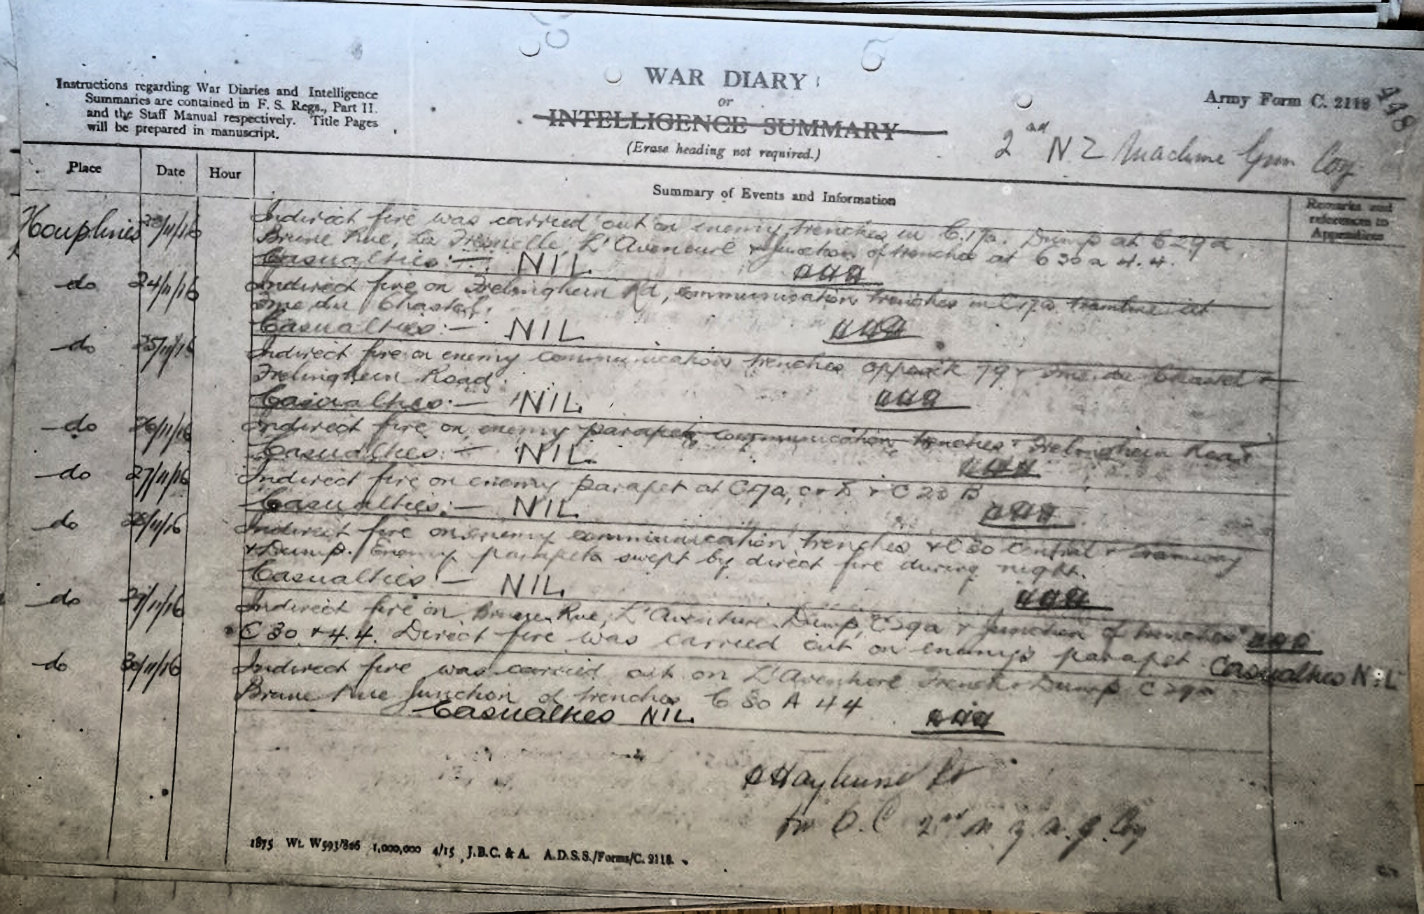 Instructions regarding War Diaries and Intelligence
Summaries are contained in F. S. Regs., Part II.
and the Staff Manual respectively. Title Pages
will be prepared in manuscript.
WAR DIARY
or
INTELLIGENCE SUMMARY
(Erase heading not required.)
Army Form C. 2118
448
2nd N Z Machine Gun Coy
Place Date Hour Summary of Events and Information Remarks and references to Appendices
Houplines 23/11/16 Indirect fire was carried out on enemy trenches in C.17a. Dump at C29a
Brune Rue, La Fresnelle, L'Aventure & junction of trenches at C30a 4.4.
Casualties:— NIL
do 24/11/16 Indirect fire on Frelinghein Rd, communication trenches in C17a tramline at
Fme du Chastel.
Casualties:— NIL
do 25/11/16 Indirect fire on enemy communication trenches opposite 79 & Fme du Chastel &
Frelinghein Road.
Casualties:— NIL
do 26/11/16 Indirect fire on enemy parapet, communication trenches & Frelinghein Road
Casualties:— NIL
do 27/11/16 Indirect fire on enemy parapet at C17a, c & & C 23 B
Casualties:— NIL
do 28/11/16 Indirect fire on enemy communication trenches & C30 central & tramway
& Dump. Enemy parapets swept by direct fire during night.
Casualties:— NIL
do 29/11/16 Indirect fire on Rue, L'Aventure Dump, C29a & junction of trenches
C30 4.4. Direct fire was carried out on enemy's parapet. Casualties NIL
do 30/11/16 Indirect fire was carried out on L'Aventure Trench & Dump C29a
Brune Rue Junction of trenches C 30 A 44
Casualties NIL
Lt
for O.C 2nd N.Z.M.G. Coy
1875 Wt. W593/826 1,000,000 4/15 J.B.C. & A. A.D.S.S./Forms/C. 2118.